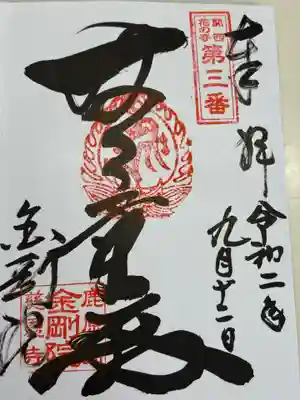 奉拝
関西
花の寺
第三番
令和二年
九月十二日
金剛院
鹿原山
金剛院
慈恩寺